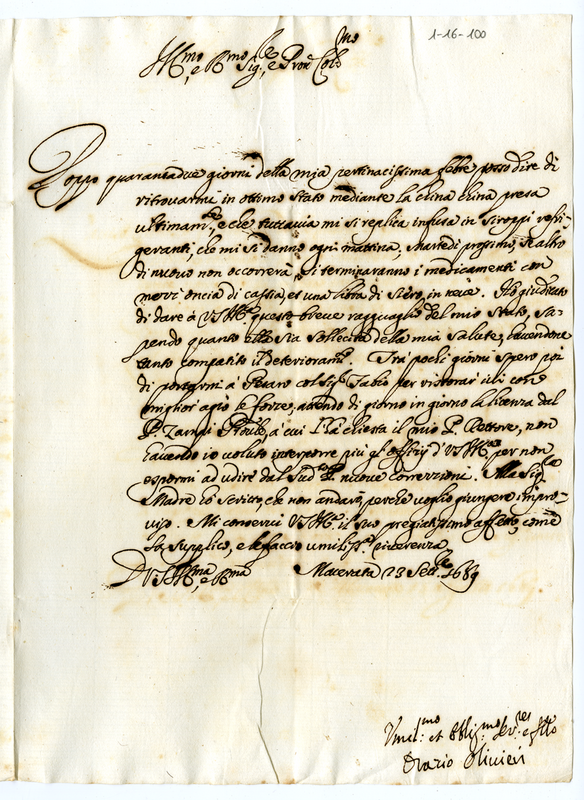 1-16-100
Ill.mo e R.mo Sig.re e Pron Col.mo
Doppo quarantadue giorni della mia pertinacissima febre posso dire di
ritrovarmi in ottimo stato mediante la china china presa
ultimam.te, e che tuttavia mi si replica infusa in siroppi refri-
geranti, che mi si danno ogni mattina, Martedì prossimo, se altro
di nuovo non occorrerà, si termineranno i medicamenti con
oncia di cassia, et una libra di siero, in vece. Hò giudicato
di dare à V.S. Ill.ma questo breve ragguaglio del mio stato, sa-
pendo quanto ella sia sollecita della mia salute, havendone
tanto compatito il deterioram.to. Trà pochi giorni spero poi
di portarmi a Pesaro col Sig.r Fabio per ristorar ivi con
miglior agio le forze, attendo di giorno in giorno la licenza dal
P. Prov.le, à cui l'hà chiesta il mio P. Rettore, non
havendo io voluto interporre più gl'offitij d'V.S. Ill.ma per non
espormi ad udire dal Sud.o P. nuove correzzioni. Alla Sig.ra
Madre hò scritto, che non andarò, perche voglio giungere impro-
viso. Mi conservi V.S. Ill.ma il suo pregiatissimo affetto, come
la supplico, e le faccio umiliss.a riverenza
D V.S. Ill.ma, e R.ma Macerata 23 Sett.re 1689
Umil.mo et Obblig.mo Ser.re e
Orazio Olivieri